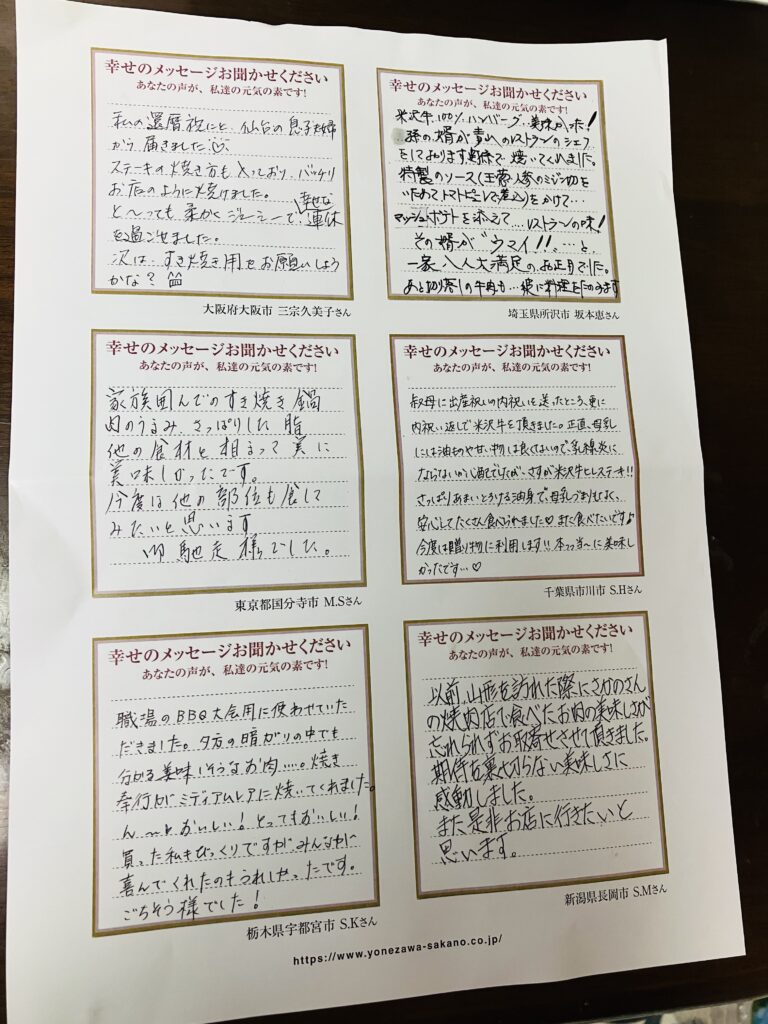 幸せのメッセージお聞かせください
あなたの声が、私達の元気の素です!
私の還暦祝にと、仙台の息子夫婦
から届きました♡。
ステーキの焼き方も入っており、バッチリ
お店のように焼けました。
と〜っても柔かくジューシーで、幸せな連休
を過ごせました。
次は、すき焼き用をお願いしよう
かな?
大阪府大阪市 三宗久美子さん
幸せのメッセージお聞かせください
あなたの声が、私達の元気の素です!
米沢牛100%ハンバーグ、美味かった!
孫の婿が青山のレストランのシェフ
をしております。実家で焼いてくれました。
特製のソース(玉葱、人参のミジン切を
いためてトマトピューレで煮込)をかけて…
マッシュポテトを添えて…レストランの味!
その婿が"ウマイ!!"…と
一家八人大満足のお正月でした。
あと切り落しの牛肉も…
埼玉県所沢市 坂本恵さん
幸せのメッセージお聞かせください
あなたの声が、私達の元気の素です!
家族囲んでのすき焼き鍋
肉のうまみ、さっぱりした脂
他の食材と相まって実に
美味しかったです。
今度は他の部位も食して
みたいと思います
御馳走様でした。
東京都国分寺市 M.Sさん
幸せのメッセージお聞かせください
あなたの声が、私達の元気の素です!
叔母に出産祝いの内祝いを送ったところ、更に
内祝い返しで米沢牛を頂きました。正直、母乳
には油ものや甘い物は良くないので、乳腺炎に
ならないか心配でしたが、さすが米沢牛ヒレステーキ!!
さっぱりあまいとろける油身で、母乳つまりもなく、
安心してたくさん食べられました♡また食べたいです♪
今度は贈り物に利用します!!本っ当〜に美味し
かったです…♡
千葉県市川市 S.Hさん
幸せのメッセージお聞かせください
あなたの声が、私達の元気の素です!
職場のBBQ大会用に使わせていた
だきました。夕方の暗がりの中でも
分かる美味しそうなお肉……。焼き
奉行がミディアムレアに焼いてくれました。
ん〜っと おいしい!とってもおいしい!
買った私もびっくりですが、みんなが
喜んでくれたのもうれしかったです。
ごちそう様でした!
栃木県宇都宮市 S.Kさん
幸せのメッセージお聞かせください
あなたの声が、私達の元気の素です!
以前、山形を訪れた際にさかのさん
の焼肉店で食べたお肉の美味しさが
忘れられずお取寄せさせて頂きました。
期待を裏切らない美味しさに
感動しました。
また是非お店に行きたいと
思います。
新潟県長岡市 S.Mさん
https://www.yonezawa-sakano.co.jp/